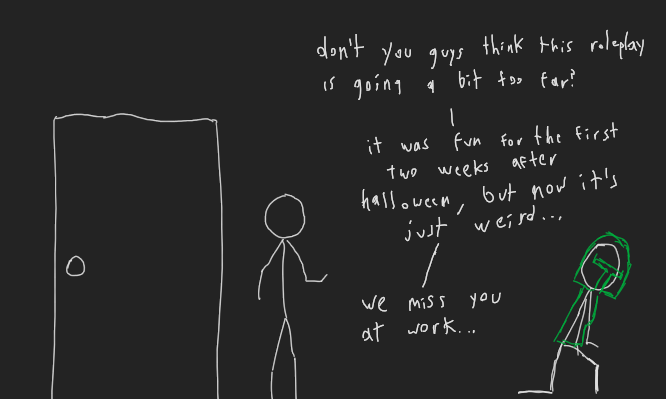 don't you guys think this roleplay
is going a bit too far?
it was fun for the first
two weeks after
halloween, but now it's
just weird...
we miss you
at work...